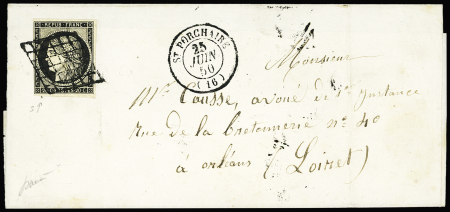 REPUB. FRANC.
ST PORCHAIRE
25
JUIN
50
(16)
Monsieur
Me Cousse, avoué de 1re Instance
Rue de la Bretonnerie no 40
à orléans (Loiret)